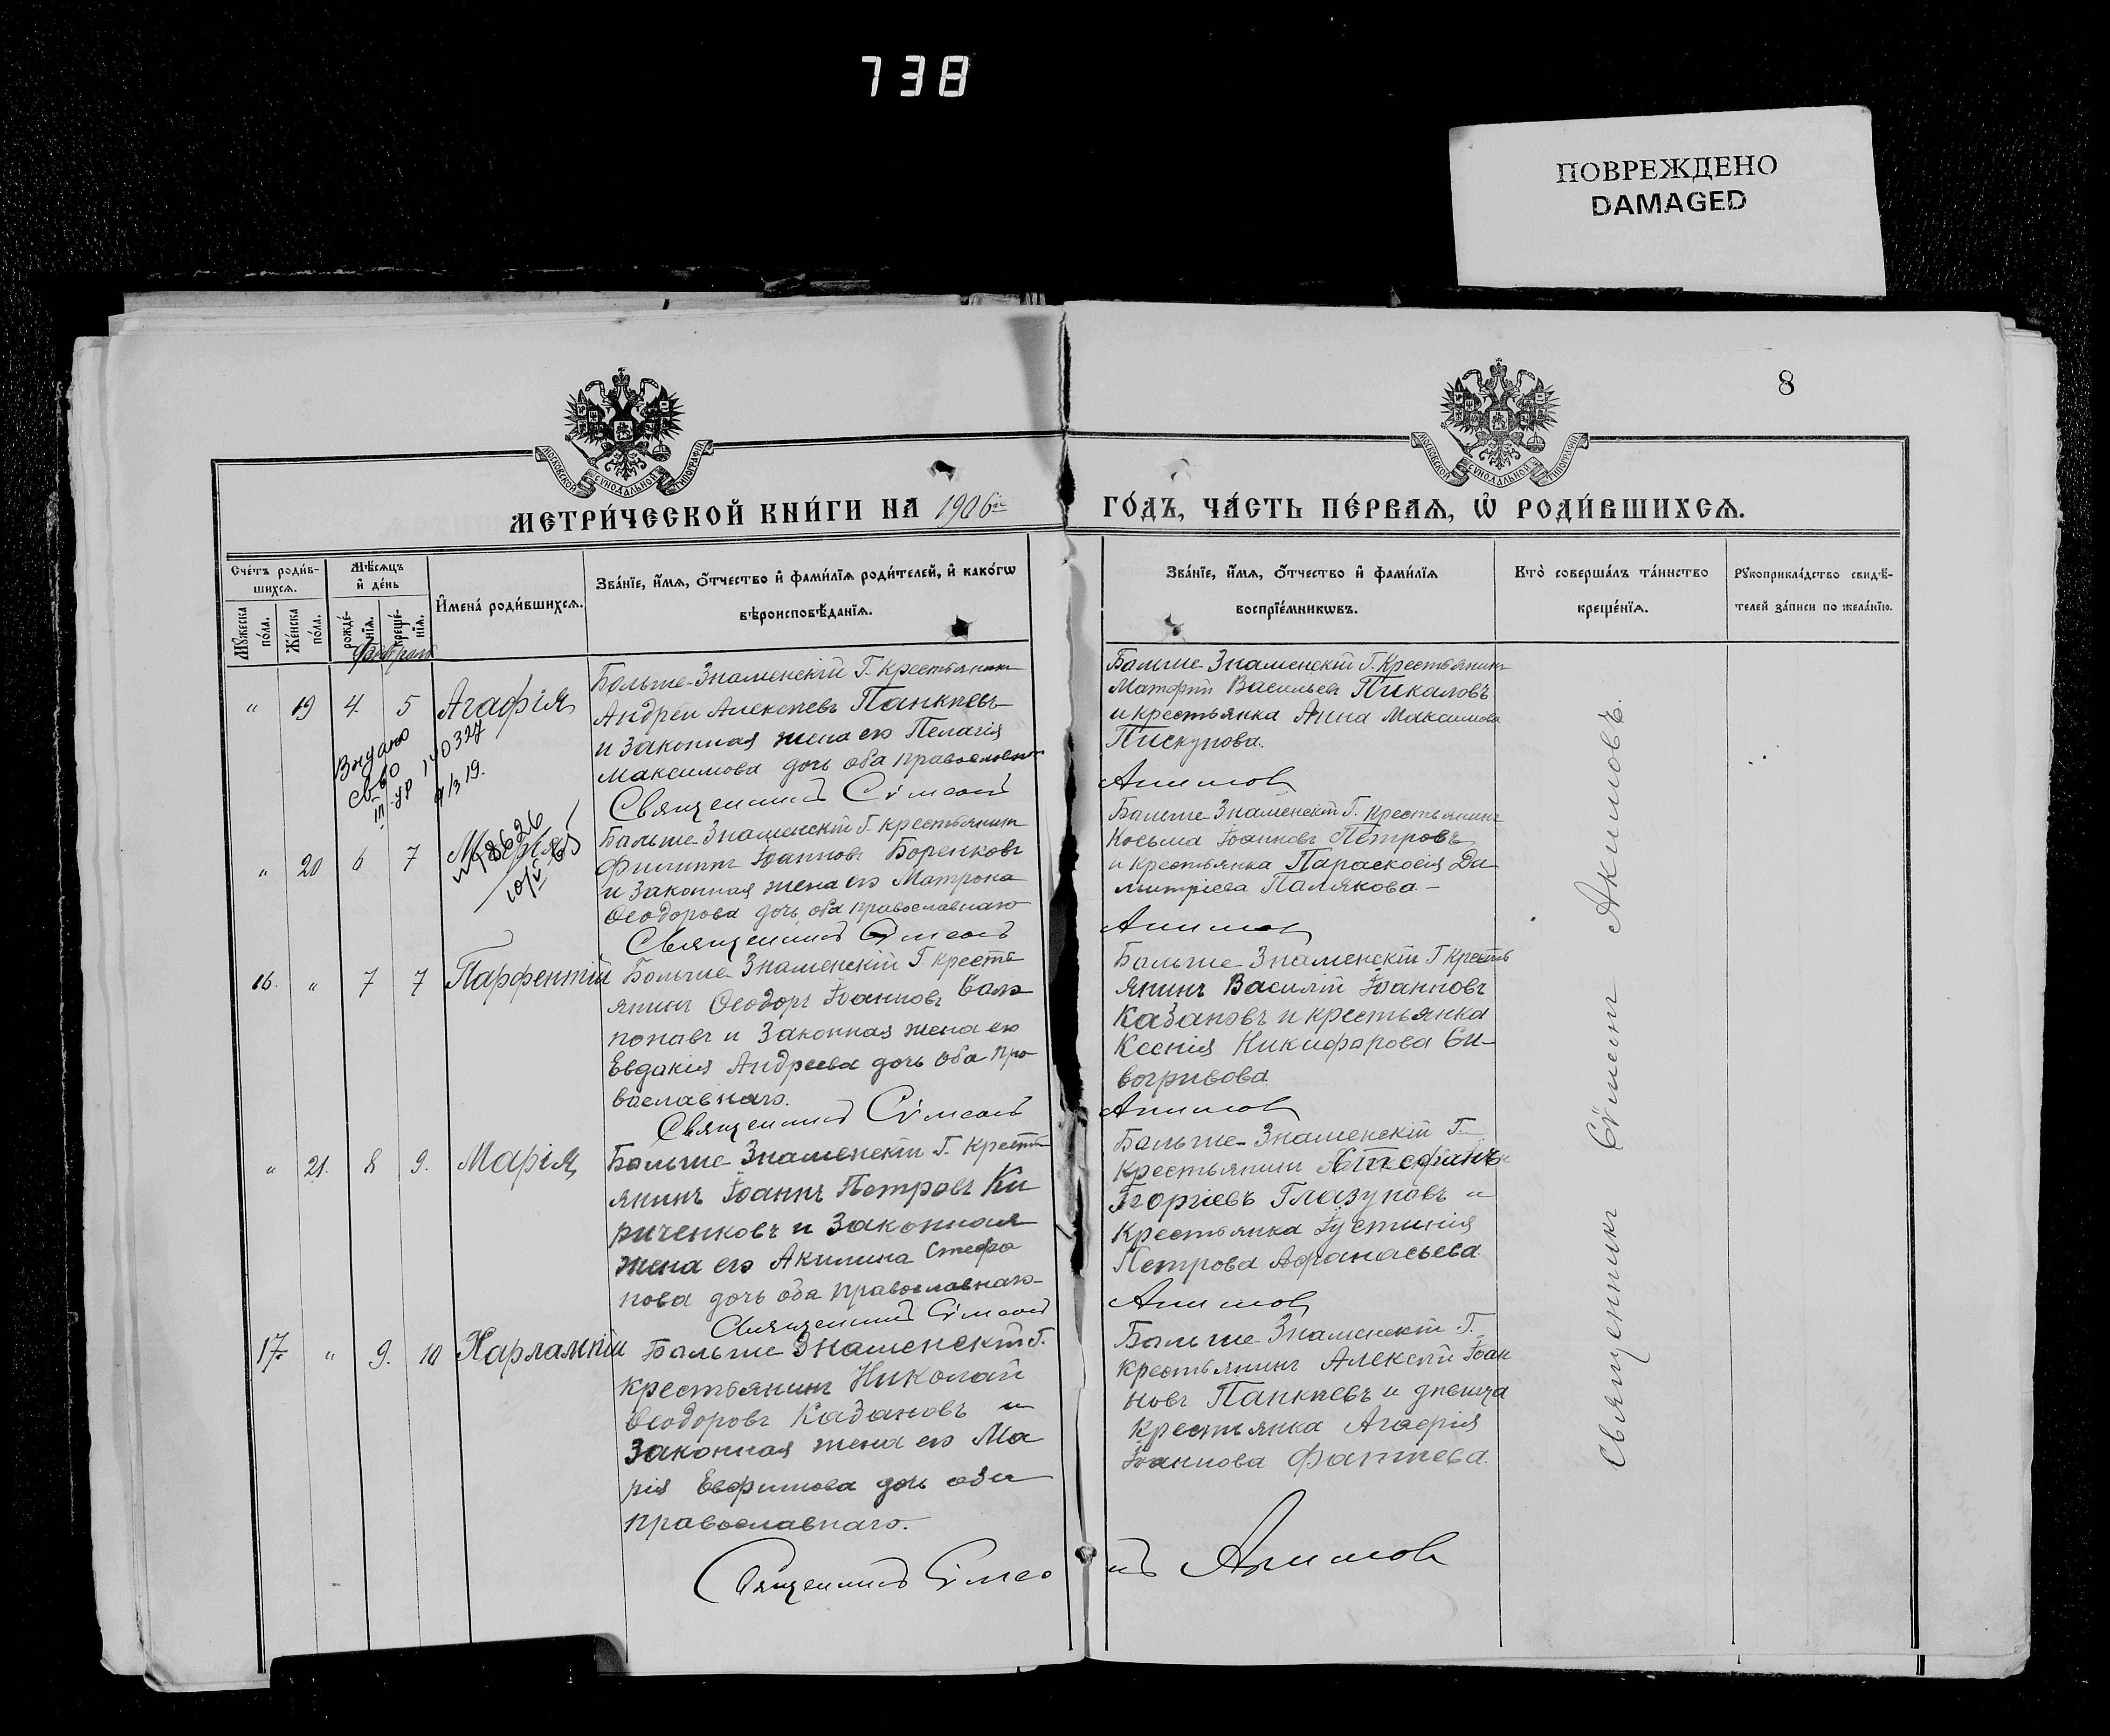 738
ПОВРЕЖДЕНО
DAMAGED
8
МОСКОВСКОЙ СУНОДАЛЬНОЙ ТИПОГРАФІИ
МОСКОВСКОЙ СУНОДАЛЬНОЙ ТИПОГРАФІИ
МЕТРИ́ЧЕСКОЙ КНИ́ГИ НА 1906й
ГО́ДЪ, ЧА́СТЬ ПЕ́РВАѦ, Ѡ҆ РОДИ́ВШИХСѦ.
Сче́тъ роди́в-
шихсѧ.
Мꙋ́жеска по́ла.
Же́нска по́ла.
Мѣ́сѧцъ
и҆ де́нь
рожде́-
нїѧ.
креще́-
нїѧ.
И҆мена̀ роди́вшихсѧ.
Зва́нїе, и҆́мѧ, ѻ҆́тчество и҆ фами́лїѧ роди́телей, и҆ како́гѡ
вѣроисповѣ́данїѧ.
Зва́нїе, и҆́мѧ, ѻ҆́тчество и҆ фами́лїѧ
воспрїе́мникѡвъ.
Кто̀ соверша́лъ та́инство
креще́нїѧ.
Рꙋкоприкла́дство свидѣ́-
телей за́писи по жела́нїю.
" 19 4. 5 Агафія
Выдано
св-во
III УР 140327
Больше-Знаменскій Г. Крестьянинъ
Андрей Алексѣевъ Панкѣевъ
и Законная жена его Пелагія
Максимова дочь оба православнаго
Священникъ Сѵмеонъ
Больше-Знаменскій Г. Крестьянинъ
Матфій Васильевъ Пикаловъ
и крестьянка Анна Максимова
Пискунова.
Акимовъ
" 20 6 7
Больше-Знаменскій Г. крестьянинъ
Филиппъ Іоанновъ Боренковъ
и Законная жена его Матрона
Ѳеодорова дочь оба православнаго
Священникъ Сѵмеонъ
Больше-Знаменскій Г. Крестьянинъ
Косьма Іоанновъ Петровъ
и Крестьянка Параскевія Ди-
митріева Палякова.-
Акимовъ
16. " 7 7 Парфентій
Больше-Знаменскій Г крестъ-
янинъ Ѳеодоръ Іоанновъ
и Законная жена его
Евдакія Андреева дочь оба пра-
вославнаго.
Священникъ Сѵмеонъ
Больше Знаменскій Г Кресть
янинъ Василій Іоанновъ
Казановъ и крестьянка
Ксенія Никифорова Си-
вогривова
Акимовъ
" 21. 8 9. Марія
Больше-Знаменскій Г. Кресть-
янинъ Іоаннъ Петровъ Ки-
риченковъ и Законная
жена его Акилина Стефа
нова дочь оба православнаго-
Священникъ Сѵмеонъ
Больше-Знаменскій Г.
крестьянинъ Стефанъ
Георгіевъ Глазуновъ и
Крестьянка Іустинія
Петрова Афанасьева
Акимовъ
17. " 9. 10 Харлампій
Больше Знаменскій Г.
крестьянинъ Николай
Ѳеодоровъ Казановъ и
Законная жена его Ма
рія Евфимова дочь оба
православнаго.
Больше Знаменскій Г.
крестьянинъ Алексѣй Іоан
новъ Панкѣевъ и дѣвица
крестьянка Агафія
Іоаннова Фатѣева.
Священникъ Сѵмеонъ Акимовъ
Священникъ Сѵмеонъ Акимовъ.